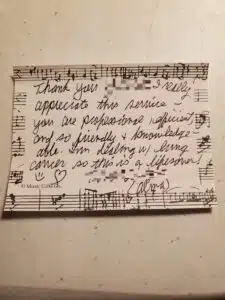 Thank you I really
appreciate this service -
you are professional, efficient,
and so friendly & knowledge-
able. I'm dealing w/ lung
cancer so this is a lifesaver!
(alma)
© Music Collection